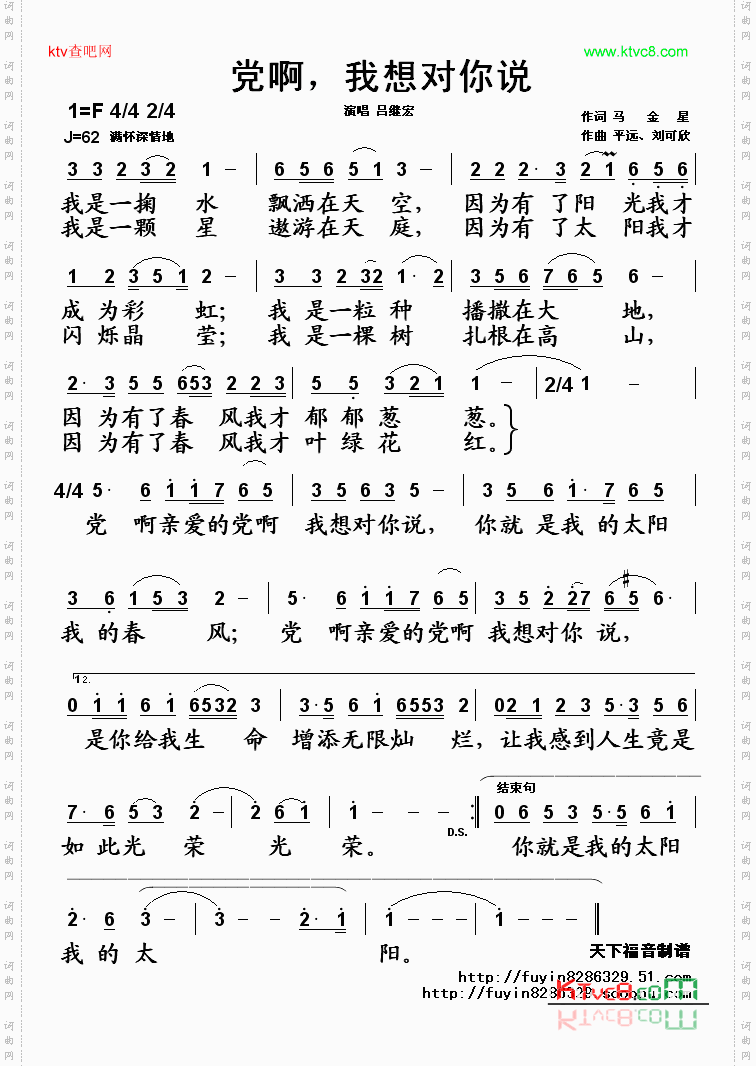 ktv查吧网
www.ktvc8.com
党啊，我想对你说
1=F 4/4 2/4
演唱 吕继宏
作词 马 金 星
J=62 满怀深情地
作曲 平远、刘可欣
3 3 2 3 2 1 – | 6 5 6 5 1 – | 2 2 2· 3 2 1 6 5 6
我是一掬 水 飘洒在天 空， 因为有 了阳 光我才
我是一颗 星 遨游在天 庭， 因为有 了太 阳我才
1 2 3 5 1 2 – | 3 3 2 32 1· 2 | 3 5 6 7 6 5 6 –
成 为彩 虹； 我 是一粒 种 播撒在大 地，
闪 烁晶 莹； 我 是一棵 树 扎根在高 山，
2· 3 5 5 653 2 2 3 | 5 5 3 2 1 | 1 – | 2/4 1 –
因 为有了春 风我才 郁 郁葱 葱。
因 为有了春 风我才 叶 绿花 红。
4/4 5· 6 1 1 7 6 5 | 3 5 6 3 5 – | 3 5 6 1· 7 6 5
党 啊亲爱的党啊 我想对你说， 你就 是我 的太阳
3 6 1 5 3 2 – | 5· 6 1 1 7 6 5 | 3 5 2 27 6 #5 6·
我 的春 风； 党 啊亲爱的党啊 我想对你 说，
12.
0 1 1 6 1 6532 3 | 3· 5 6 1 6553 2 | 02 1 2 3 5·3 5 6
是你给我生 命 增添无限灿 烂，让我感到人生竟是
结束句
7· 6 5 3 2 – | 2 6 1 | 1 – – – :| 0 6 5 3 5·5 6 1
D.S.
如 此光 荣 光 荣。 你就是我的太阳
2· 6 3 – | 3 – – 2·1 | 1 – – – | 1 – – – ||
我 的 太 阳。
天下福音制谱
http://fuyin8286329.51.com
KTvc8.com